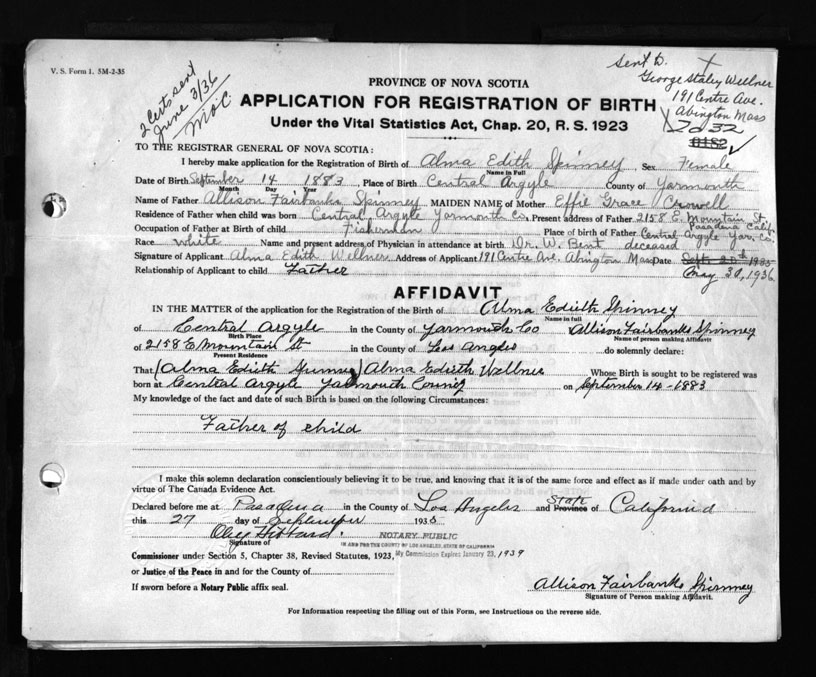 V. S. Form 1. 5M-2-35
2 Certs sent
June 3/36
MOC
Sent to
George Staley Wellner
191 Centre Ave.
Abington Mass
PROVINCE OF NOVA SCOTIA
APPLICATION FOR REGISTRATION OF BIRTH
Under the Vital Statistics Act, Chap. 20, R. S. 1923
TO THE REGISTRAR GENERAL OF NOVA SCOTIA:
I hereby make application for the Registration of Birth of Alma Edith Spinney Sex Female
Name in Full
Date of Birth September 14 1883 Place of Birth Central Argyle County of Yarmouth
Month Day Year
Name of Father Allison Fairbanks Spinney MAIDEN NAME of Mother Effie Grace Crowell
Residence of Father when child was born Central Argyle Yarmouth Co. Present address of Father 2158 E. Mountain St. Pasadena Calif.
Occupation of Father at Birth of child Fisherman Place of birth of Father Central Argyle Yar. Co.
Race White Name and present address of Physician in attendance at birth Dr. W. Bent deceased
Signature of Applicant Alma Edith Wellner Address of Applicant 191 Centre Ave. Abington Mass Date Sept. 20th 1935
Relationship of Applicant to child Father May 30, 1936
AFFIDAVIT
IN THE MATTER of the application for the Registration of the Birth of Alma Edieth Spinney
Name in full
of Central Argyle in the County of Yarmouth Co Allison Fairbanks Spinney
Birth Place Name of person making Affidavit
of 2158 E Mountain St in the County of Los Angles do solemnly declare:
Present Residence
That (Alma Edieth Spinney) Alma Edieth Wellner Whose Birth is sought to be registered was
born at Central Argyle Yarmouth County on September 14-1883
My knowledge of the fact and date of such Birth is based on the following Circumstances:
Father of child
I make this solemn declaration conscientiously believing it to be true, and knowing that it is of the same force and effect as if made under oath and by
virtue of The Canada Evidence Act.
Declared before me at Pasadena in the County of Los Angeles and Province State of California
this 27 day of September 1935
Olive Hibbard
Signature of
NOTARY PUBLIC
IN AND FOR THE COUNTY OF LOS ANGELES, STATE OF CALIFORNIA
Commissioner under Section 5, Chapter 38, Revised Statutes, 1923, My Commission Expires January 23, 1939
or Justice of the Peace in and for the County of
If sworn before a Notary Public affix seal.
Allison Fairbanks Spinney
Signature of Person making Affidavit.
For Information respecting the filling out of this Form, see Instructions on the reverse side.